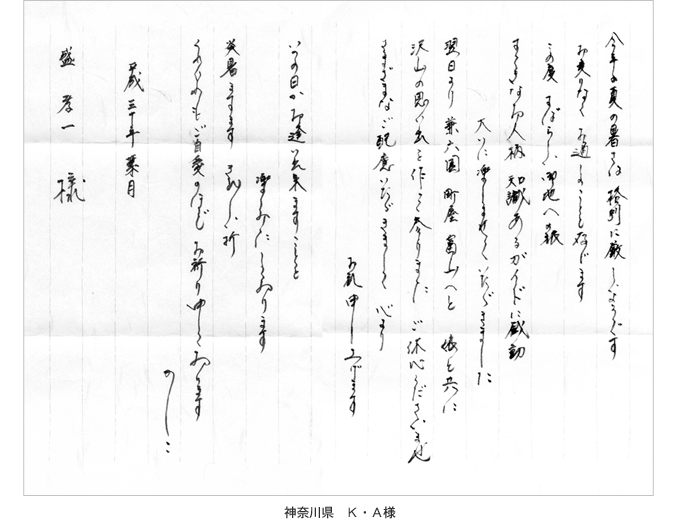 今年の夏の暑さは 格別に厳しいようです
お変りなく お過しのことと存じます
この度 すばらしい御地への旅
すてきなお人柄 知識あるガイドに感動
大いに楽しませていただきました
翌日より 兼六園 町屋 富山へと 娘と共に
沢山の思い出を作って参りました ご休心くださいませ
さまざまなご配慮いただきまして 心より
お礼申し上げます
いつの日か お逢い出来ますことを
楽しみにしております
炎暑ますます 厳しい折
くれぐれもご自愛のほど お祈り申しております
かしこ
平成 三十年 葉月
盛 孝一 様
神奈川県 K・A様